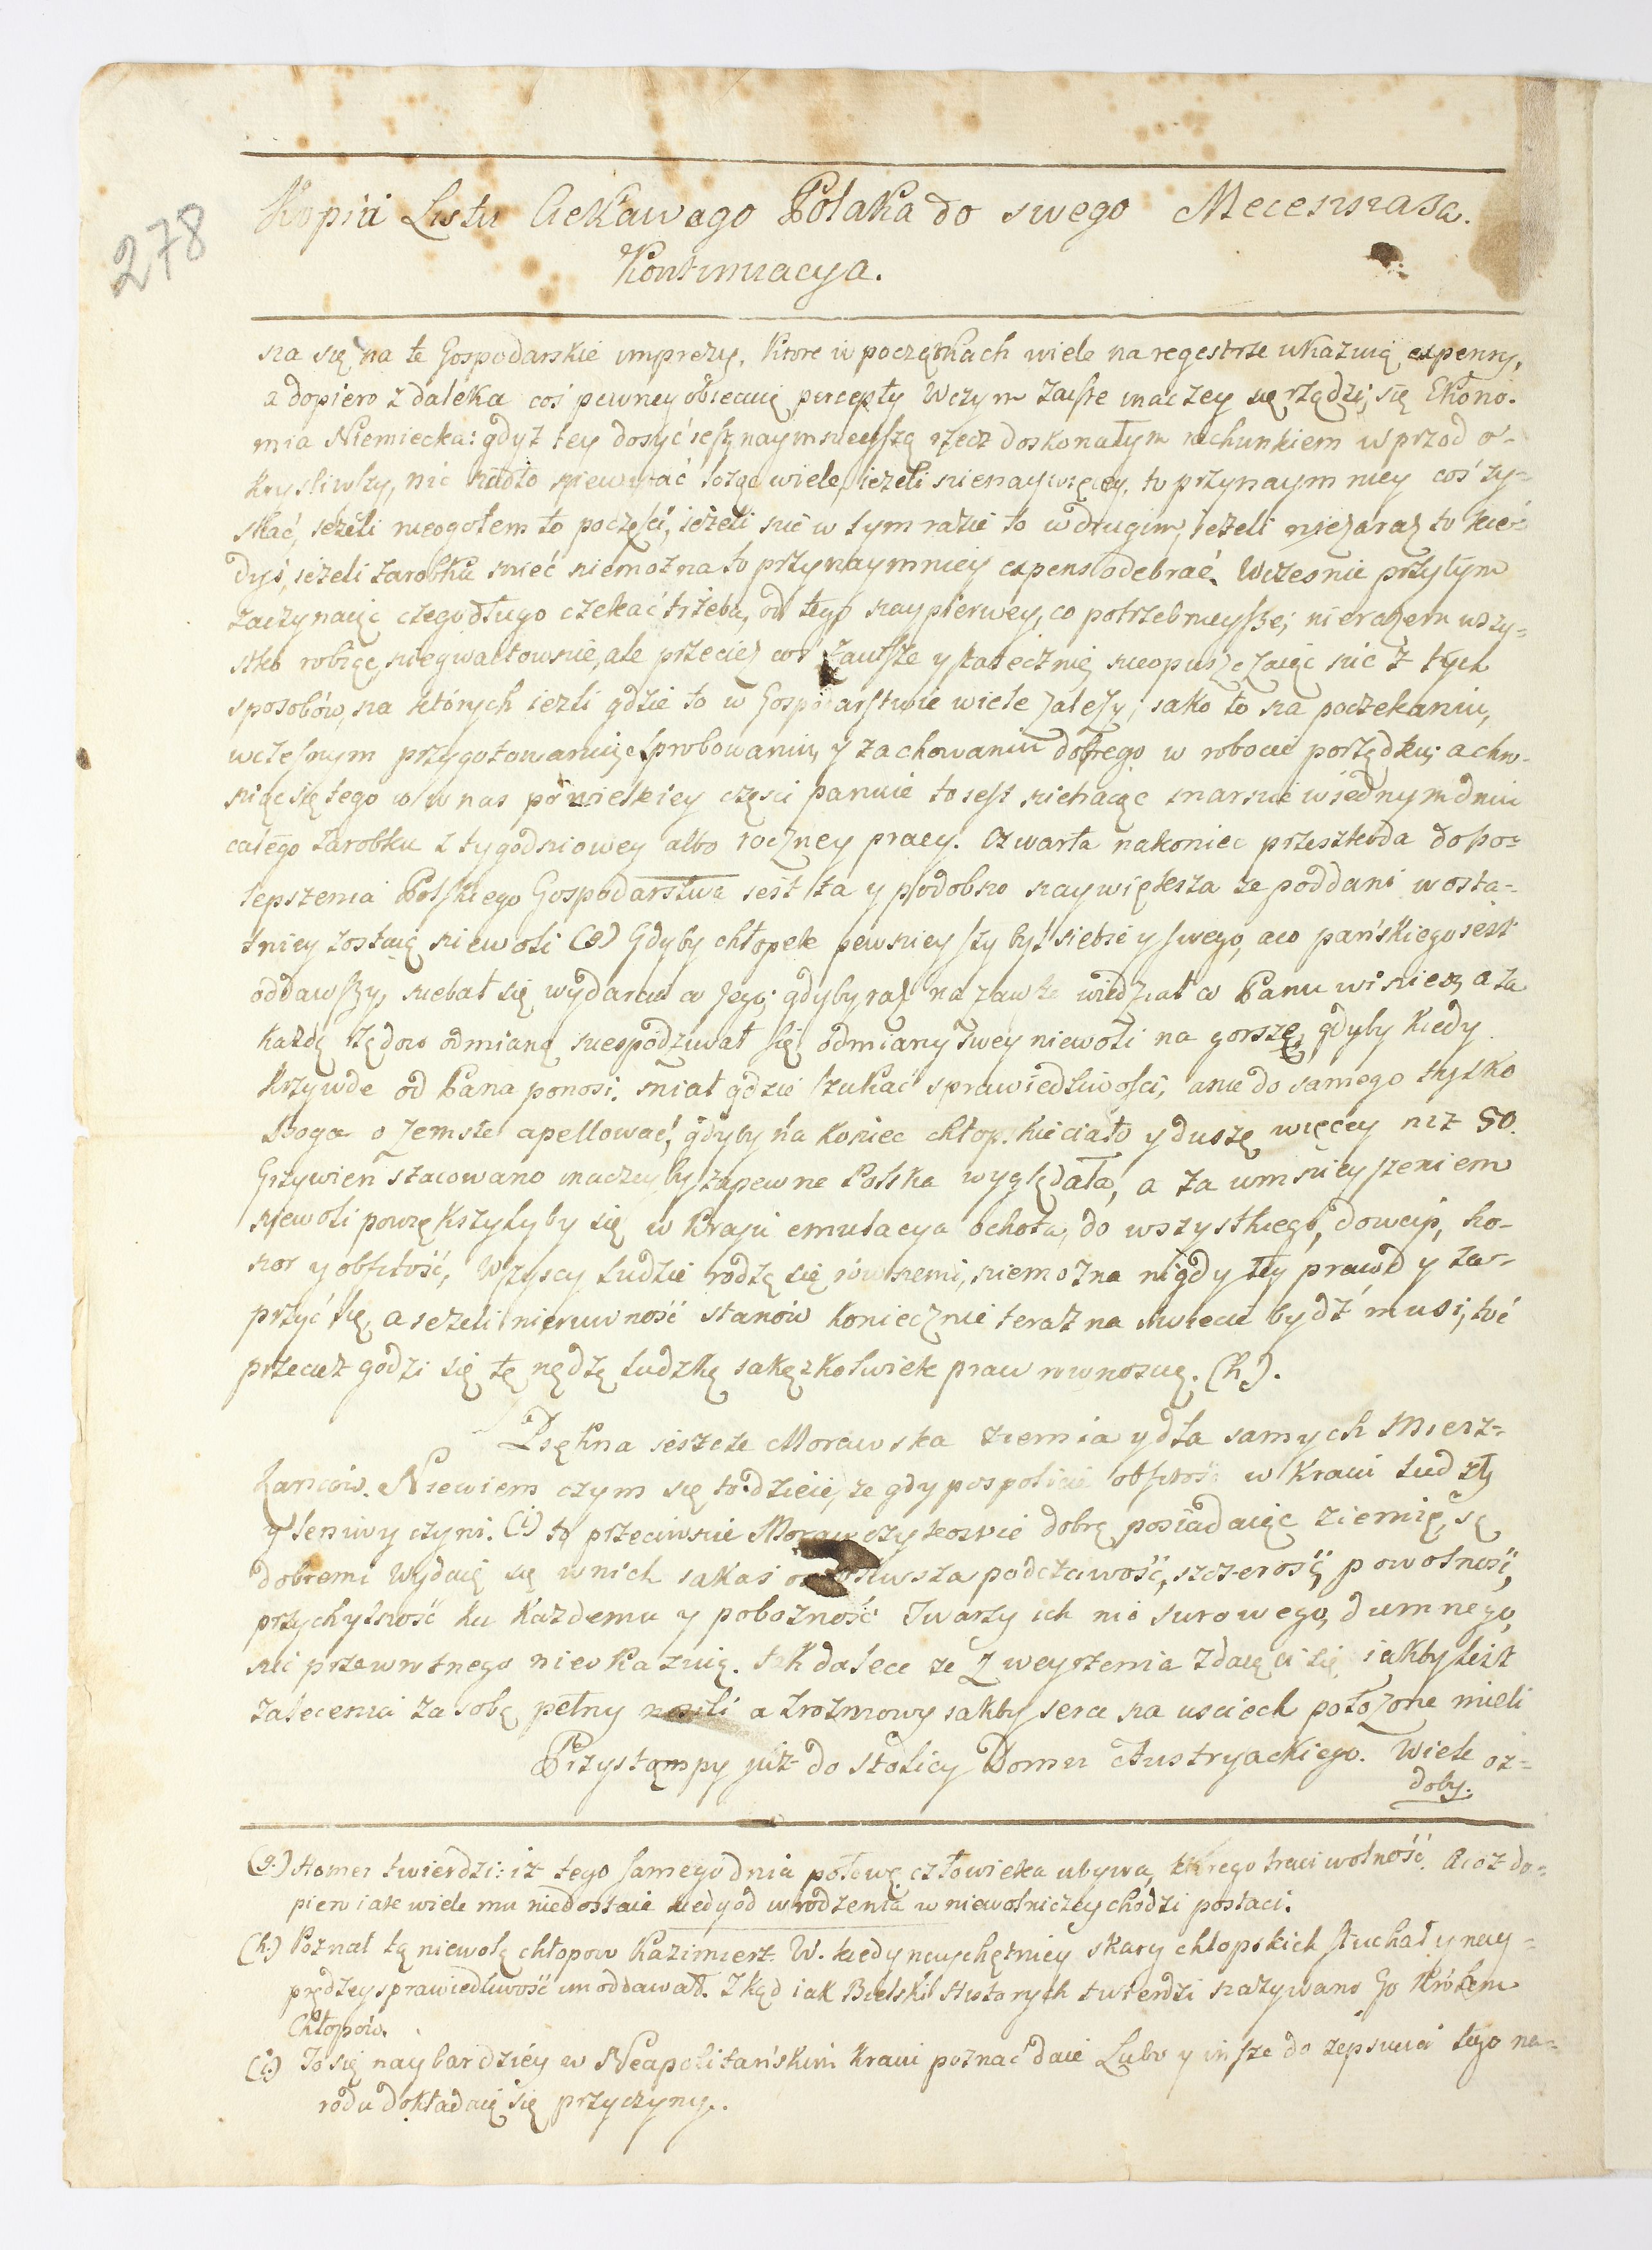 278
Kopia Listu Ciekawego Polaka do swego Mecennasa.
Kontinuacya.
sza się na te Gospodarskie imprezy, Ktore w początkach wiele na regestrze ukazuią expensy,
a dopiero z daleka coś pewney obiecuię percepty Wczym zawsze inaczey się rządzi, się Ekono-
mia Niemiecka: gdyż tey dosyć iest naymnieyszą rzecz doskonałym rachunkiem wprzod o-
kryśliwszy, nic nadto niewydać łożąc wiele, ieżeli nienaywięcey, to przynaymniey coś zy-
skać, ieżeli nieogołem to poczęści, ieżeli nie w tym razie to w drugim, ieżeli niezaraz to kie-
dyś, ieżeli zarobku mieć niemożna to przynaymniey expens odebrać. Wcześnie przytym
zaczynaiąc czego długo czekać trzeba, od tego naypierwey, co potrzebnieysze; nierazem wszy-
stko robiąc, niegwałtownie, ale przecież coś zawsze y statecznie, nieopuszczaiąc nic z tych
sposobów, na których iezli gdzie to w Gospodarstwie wiele zależy, iako to na poczekaniu,
wczesnym przygotowaniu, sprobowaniu, y zachowaniu dobrego w robocie porządku; a chro-
niąc się tego co w nas po wielkiey części panuie to iest niehcąc marnie w iednym dniu
całego zarobku z tygodniowey albo roczney pracy. Czwarta nakoniec przeszkoda do po-
lepszenia Polskiego Gospodarstwa iest ta y podobno naywiększa ze poddani w osta-
tniey zostaią niewoli (g) Gdyby chłopek pewnieyszy był siebie y swego, a co pańskiego iest
oddawszy, niebał się wydarcia co Jego; gdyby raz na zawsze wiedział co Panu winien, a za
każdą rządow odmianą niespodziwał się odmiany swey niewoli na gorszą, gdyby kiedy
krzywde od Pana ponosi, miał gdzie szukać sprawiedliwości, a nie do samego tylko
Boga o zemste apellować, gdyby na koniec chłopskie ciało y duszę więcey niż 50.
Grzywień szacowano inaczey by zapewne Polska wyglądała, a za umnieyszeniem
niewoli powiększyłyby się w Kraju emulacya ochota, do wszystkiego, dowcip, ho-
nor y obfitość, Wszyscy ludzie rodzą się rownemi, niemożna nigdy tey prawdy za-
przyć się, a ieżeli nierowność stanów koniecznie teraz na świecie bydź musi, toć
przeciez godzi się tę nędzę ludzką iakążkolwiek praw rownoscią. (h).
Piękna ieszcze Morawska ziemia y dla samych Miesz-
kańców. Niewiem czym się to dzieie, że gdy pospolicie obfitość w kraiu lud zły
y leniwy czyni. (i) to przeciwnie Morawczykowie dobrą posiadaiąc ziemię, są
dobremi Wydaię się w nich iakaś podcżciwość, szczerość, powolność,
przychylność ku każdemu y pobożność Twarzy ich nic surowego, dumnego,
nic przewrotnego nieokazuią. tak dalece że z weyrzenia zdaią ci się, iakby list
zalecenia za sobą pełny nosili a z rozmowy iakby serce na usciech położone mieli
Przystąmpy już do stolicy Domu Austryackiego. Wiele oz-
doby.
(g.) Homer twierdzi: iż tego samego dnia połowę człowieka ubywa, ktorego traci wolność. A coż do-
piero iak wiele mu niedostaie kiedy od wrodzenia w niewolniczey chodzi postaci.
(h.) Poznał tą niewolą chłopow Kazimierz W. kiedy naychętniey skarg chłopskich słuchał y nay-
prędzey sprawiedliwość im oddawał. Zkąd iak Bielski Historyk twierdzi nazywano Go Królem
Chłopów.
(i) To się naybardziey w Neapolitańskim kraiu poznać daie Lubo y insze do zepsucia tego na-
rodu dokładaią się przyczyny.